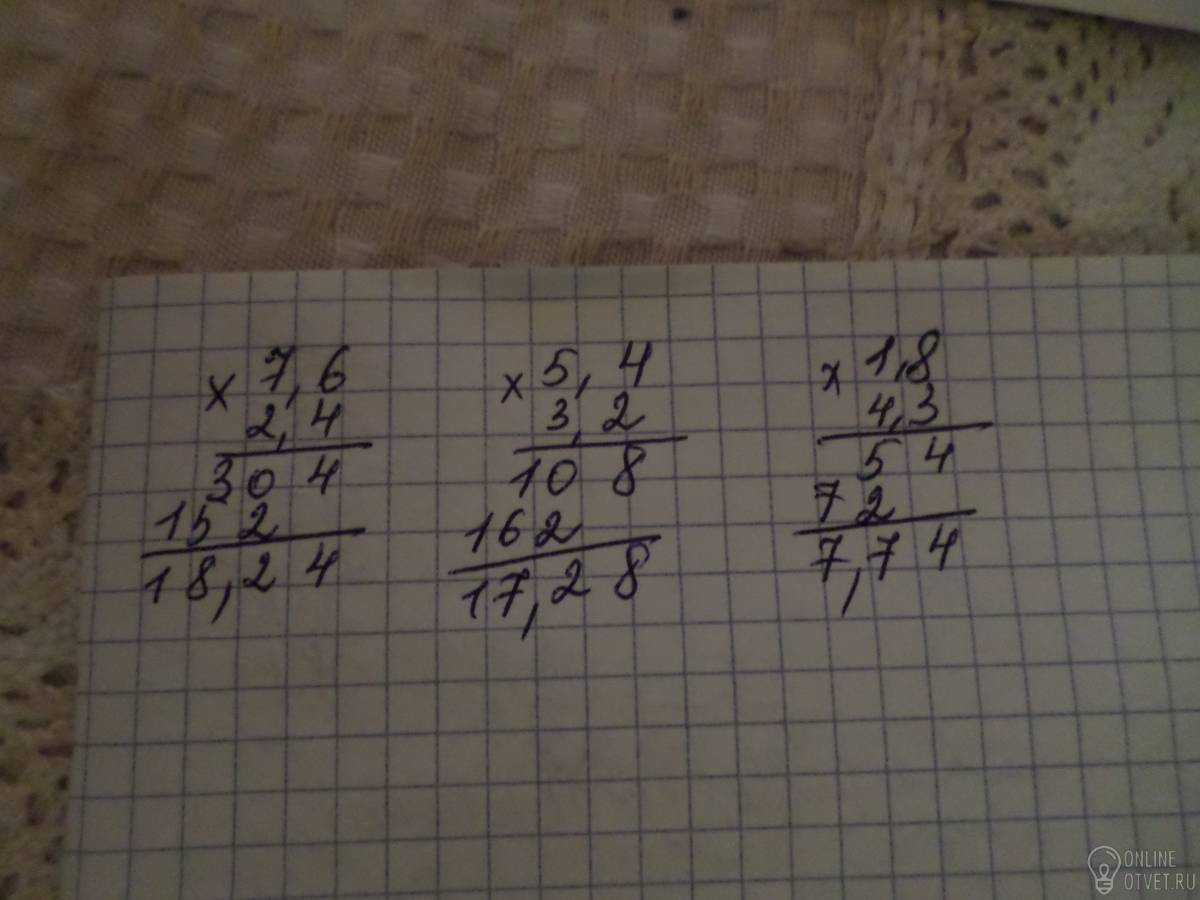 x 7,6
2,4
304
152
18,24
x 5,4
3,2
108
162
17,28
x 1,8
4,3
54
72
7,74
ONLINE
OTVET.RU